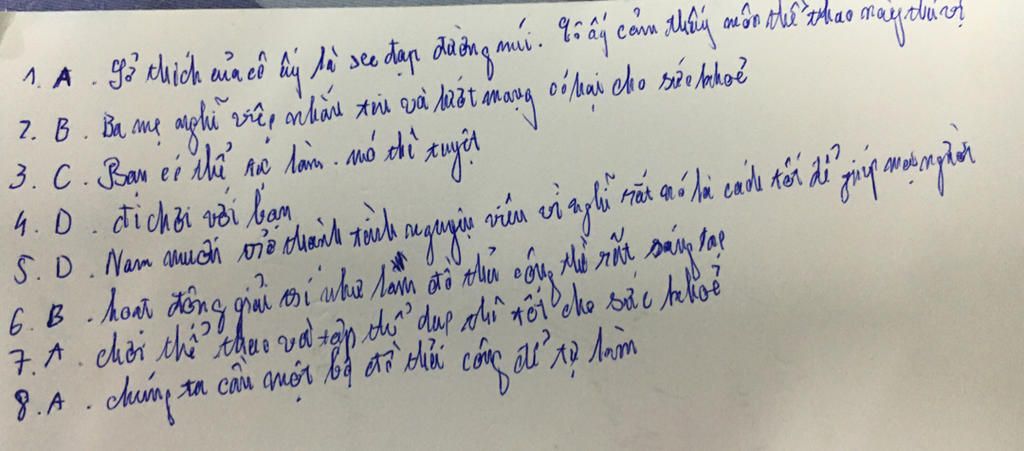 1. A. Sở thích của cô ấy là xe đạp đường núi. Cô ấy cảm thấy môn thể thao này thú vị
2. B. Ba mẹ nghĩ việc nhắn tin và lướt mạng có hại cho sức khoẻ
3. C. Bạn có thể tự làm. nó thì tuyệt
4. D. đi chơi với bạn
5. D. Nam muốn trở thành tình nguyện viên vì nghĩ rất nó là cách tốt để giúp mọi người
6. B. hoạt động giải trí như làm đồ thủ công thì rất sáng tạo
7. A. chơi thể thao và tập thể dục thì tốt cho sức khoẻ
8. A. chúng ta cần một bộ đồ thủ công để tự làm